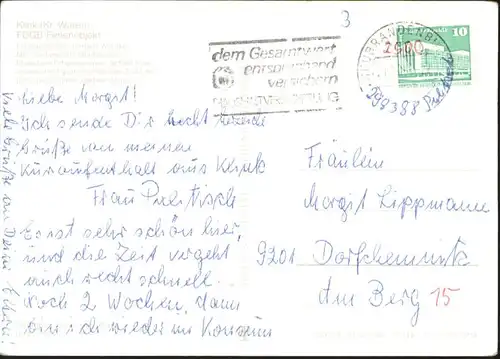 Klink Kr. Waren
FDGB Ferienobjekt
3
dem Gesamtwert
entsprechend
versichern
NEUBRANDENBURG
2000
10
Liebe Margit!
Ich sende Dir recht
Grüße von meinem
Kuraufenthalt aus Klink
Frau Pulitisch
Es ist sehr schön hier,
und die Zeit vergeht
auch recht schnell.
Noch 2 Wochen, dann
bin ich wieder im Konsum
Viele Grüße an Deine Eltern!
Fräulein
Margit Lippmann
9201 Dorfchemnitz
Am Berg 15